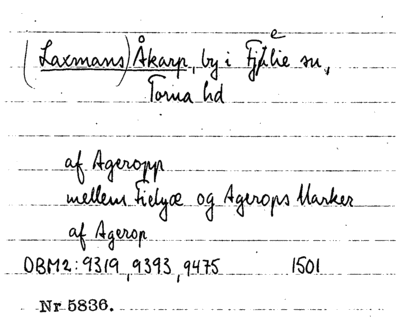 (Laxmans) Åkarp, by i Fjelie sn,
Torna hd
af Ageropp
mellem Fielyæ og Agerops Marker
af Agerop
DBM2: 9319, 9393, 9475 1501
Nr 5836.